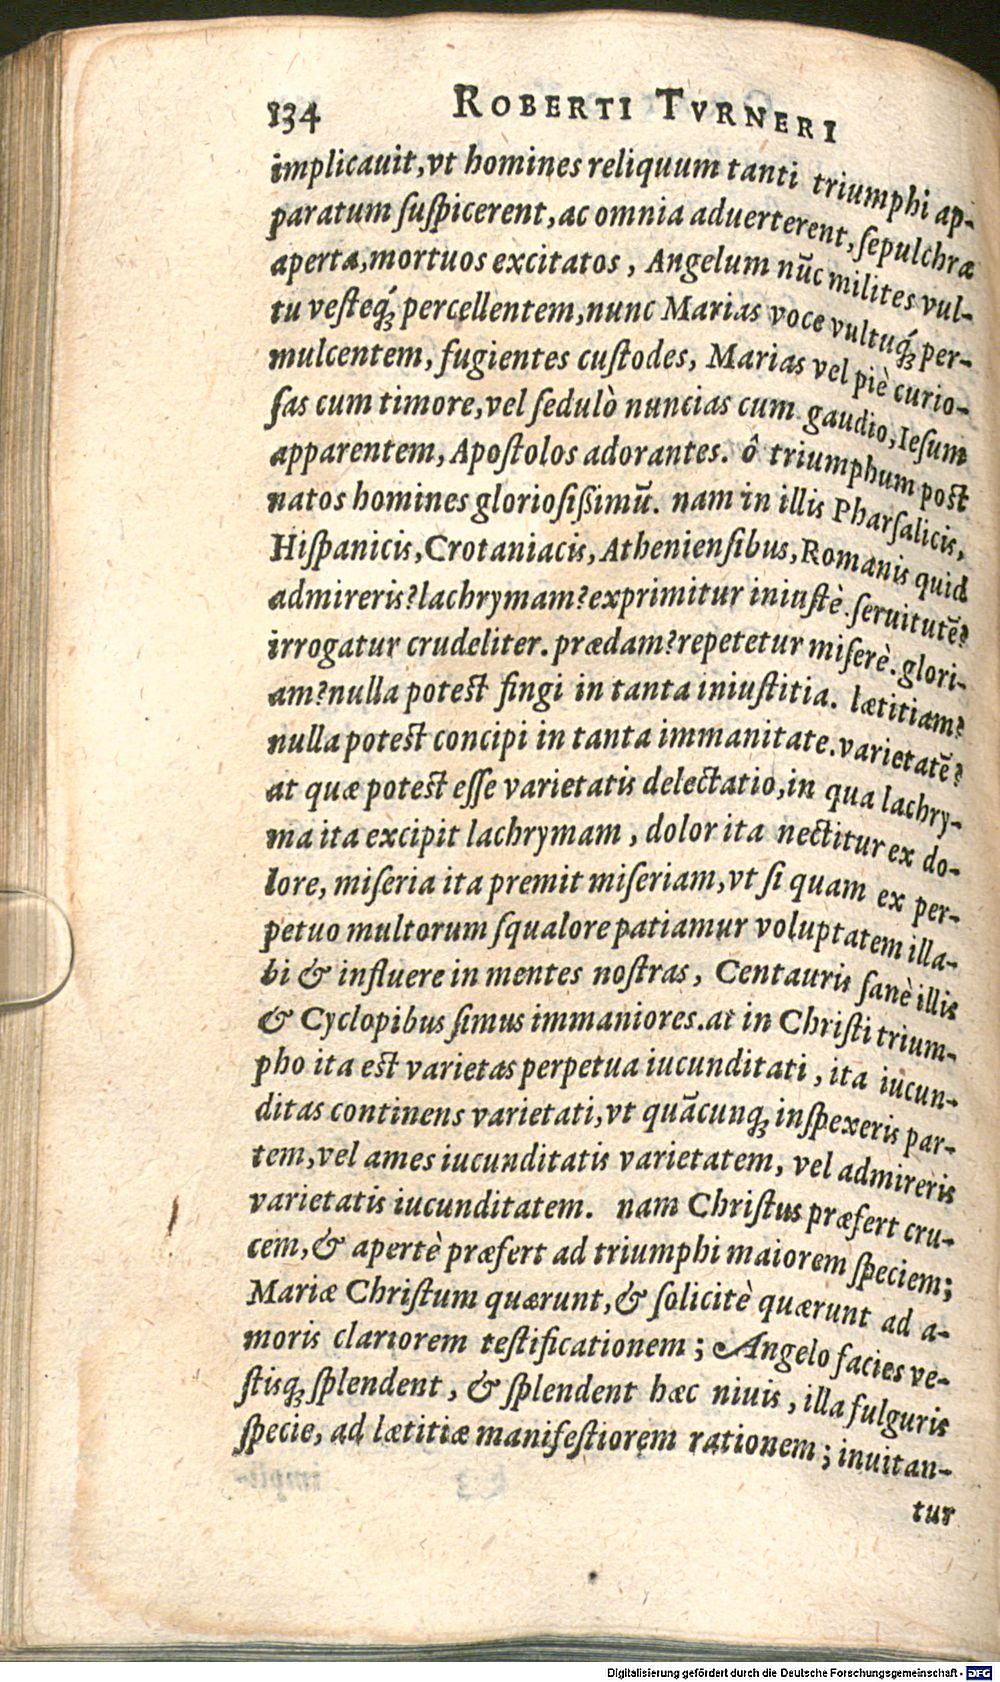 134 ROBERTI TVRNERI
implicauit, vt homines reliquum tanti triumphi ap-
paratum ſuſpicerent, ac omnia aduerterent, ſepulchra
aperta, mortuos excitatos, Angelum nūc milites vul-
tu veſteq́ꝫ percellentem, nunc Marias voce vultuq́ꝫ per-
mulcentem, fugientes cuſtodes, Marias vel piè curio-
ſas cum timore, vel ſedulò nuncias cum gaudio, Ieſum
apparentem, Apoſtolos adorantes. ô triumphum poſt
natos homines glorioſißimū. nam in illis Pharſalicis,
Hiſpanicis, Crotaniacis, Athenienſibus, Romanis quid
admireris? lachrymam? exprimitur iniuſtè. ſeruitutē?
irrogatur crudeliter. prædam? repetetur miſerè. glori-
am? nulla poteſt fingi in tanta iniuſtitia. lætitiam?
nulla poteſt concipi in tanta immanitate. varietatē?
at quæ poteſt eſſe varietatis delectatio, in qua lachry-
ma ita excipit lachrymam, dolor ita nectitur ex do-
lore, miſeria ita premit miſeriam, vt ſi quam ex per-
petuo multorum ſqualore patiamur voluptatem illa-
bi & influere in mentes noſtras, Centauris ſanè illis
& Cyclopibus ſimus immaniores. at in Chriſti trium-
pho ita eſt varietas perpetua iucunditati, ita iucun-
ditas continens varietati, vt quācunqꝫ inſpexeris par-
tem, vel ames iucunditatis varietatem, vel admireris
varietatis iucunditatem. nam Chriſtus præfert cru-
cem, & apertè præfert ad triumphi maiorem ſpeciem;
Mariæ Chriſtum quærunt, & ſolicitè quærunt ad a-
moris clariorem teſtificationem; Angelo facies ve-
ſtisqꝫ ſplendent, & ſplendent hæc niuis, illa fulguris
ſpecie, ad lætitiæ manifeſtiorem rationem; inuitan-
tur
Digitalisierung gefördert durch die Deutsche Forschungsgemeinschaft - DFG